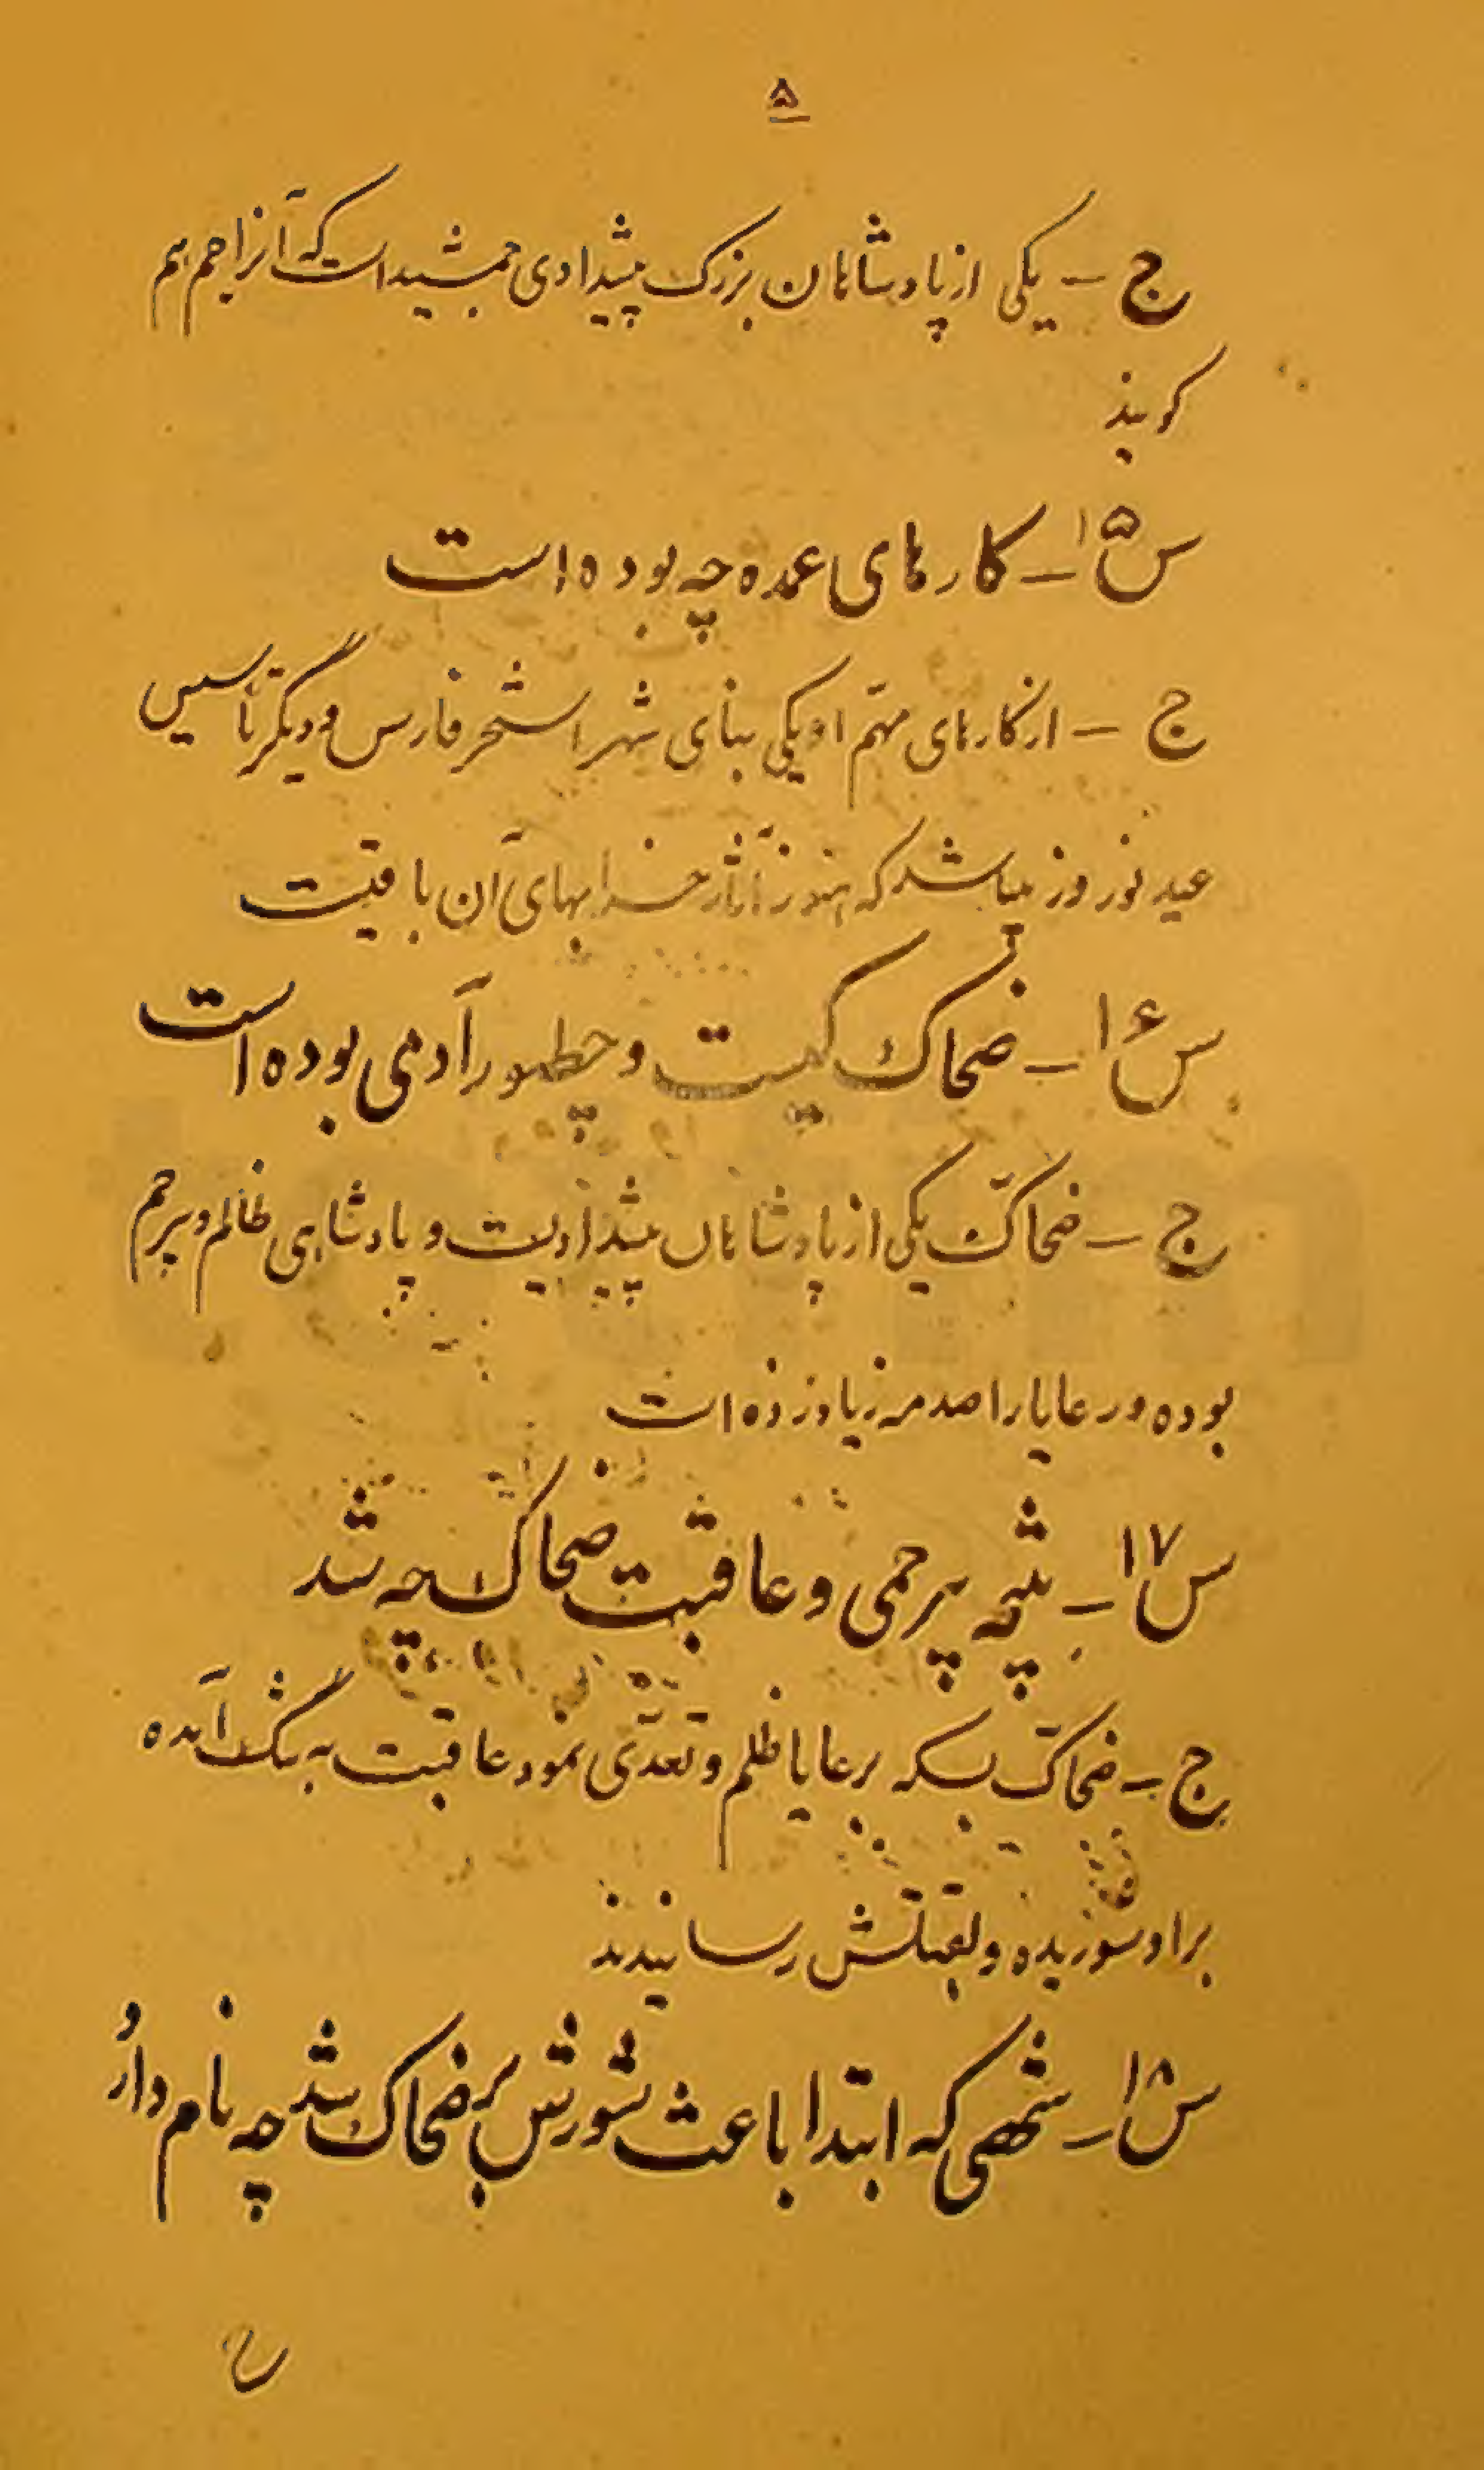 ۵
ج – یکی از پادشاهان بزرک پیشدادی جمشید است که آنرا جم هم
کویند
س ۱۵ – کارهای عمده چه بوده است
ج – از کارهای مهم او یکی بنای شهر استخر فارس و دیگر تأسیس
عید نوروز میباشد که هنوز آثار خرابهای آن باقیت
س ۱۶ – ضحاک کیست و چطور آدمی بوده است
ج – ضحاک یکی از پادشاهان پیشدادیت و پادشاهی ظالم و بیرحم
بوده و رعایا را صدمه زیاد زده است
س ۱۷ – نتیجه بیرحمی و عاقبت ضحاک چه شد
ج – ضحاک بسکه برعایا ظلم و تعدّی نمود عاقبت به تنگ آمده
براو شوریده و بقتلش رسانیدند
س ۱۸ – شخصی که ابتدا باعث شورش بر ضحاک شد چه نام دارد